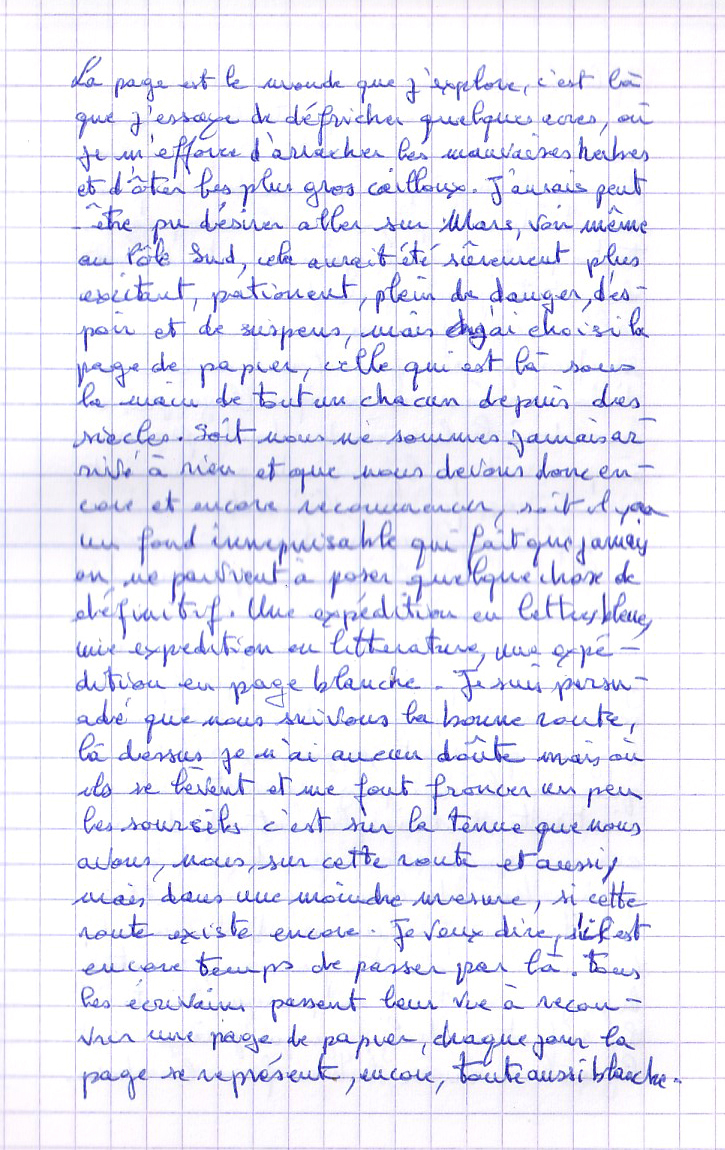 La page est le monde que j'explore, c'est là
que j'essaye de défricher quelques acres, où
je m'efforce d'arracher les mauvaises herbes
et d'ôter les plus gros cailloux. J'aurais peut
-être pu désirer aller sur Mars, voir même
au Pôle Sud, cela aurait été sûrement plus
excitant, pationent, plein de danger, d'es-
poir et de suspens, mais j'ai choisi la
page de papier, celle qui est là sous
la main de tout un chacun depuis des
siècles. Soit nous ne sommes jamais ar-
rivé à rien et que nous devons donc en-
core et encore recommencer, soit il y a
un fond innepuisable qui fait que jamais
on ne parvient à poser quelque chose de
définitif. Une expédition en lettres bleues,
une expedition en litterature, une expé-
dition en page blanche. Je suis persu-
adé que nous suivons la bonne route,
là dessus je n'ai aucun doûte mais où
ils se lèvent et me font froncer un peu
les sourcils c'est sur la tenue que nous
avons, nous, sur cette route et aussi,
mais dans une moindre mesure, si cette
route existe encore. Je veux dire, s'il est
encore temps de passer par là. Tous
les écrivains passent leur vie à recou-
vrir une page de papier, chaque jour la
page se représente, encore, toute aussi blanche.